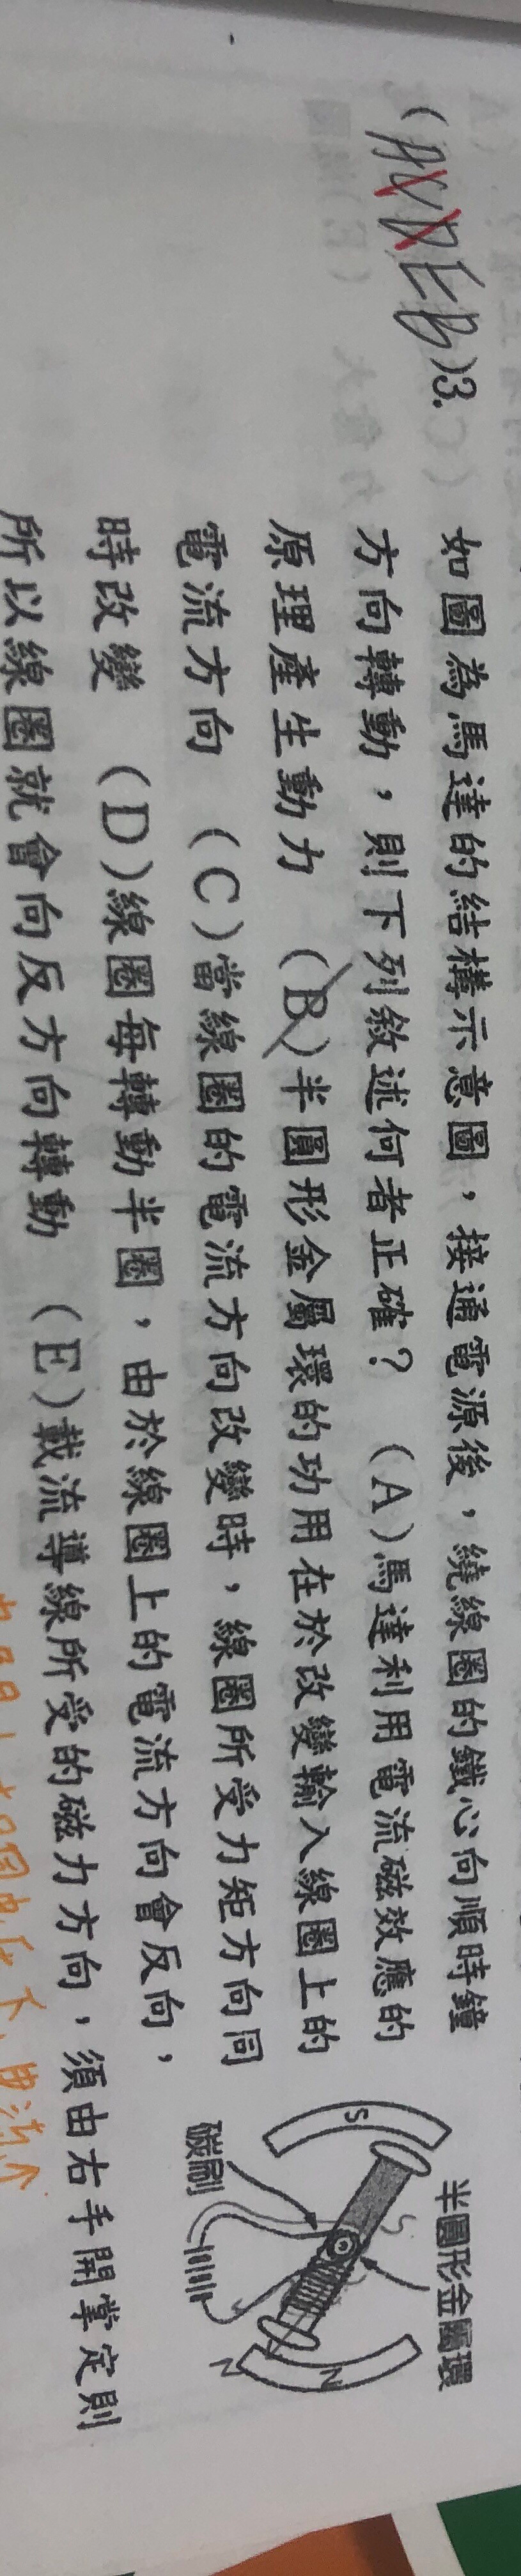 (ACDEB)3.
如圖為馬達的結構示意圖，接通電源後，繞線圈的鐵心向順時鐘
方向轉動，則下列敘述何者正確？ (A)馬達利用電流磁效應的
原理產生動力 (B)半圓形金屬環的功用在於改變輸入線圈上的
電流方向 (C)當線圈的電流方向改變時，線圈所受力矩方向同
時改變 (D)線圈每轉動半圈，由於線圈上的電流方向會反向，
所以線圈就會向反方向轉動 (E)載流導線所受的磁力方向，須由右手開掌定則
半圓形金屬環
碳刷
S
S
N
N